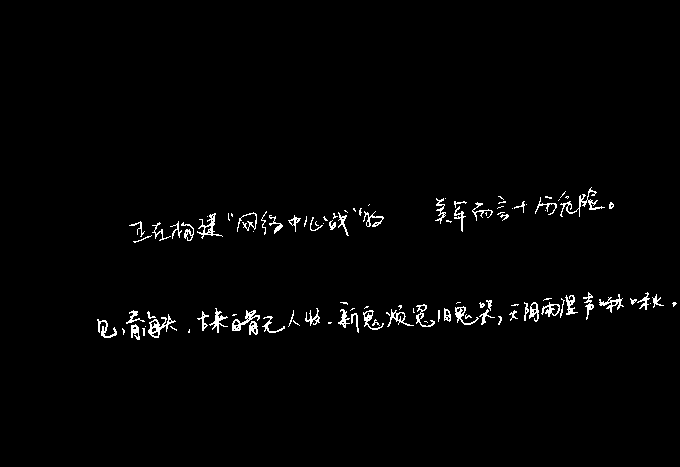 正在构建“网络中心战”的 美军而言十分危险。
见,青海头,古来白骨无人收.新鬼烦冤旧鬼哭,天阴雨湿声啾啾.